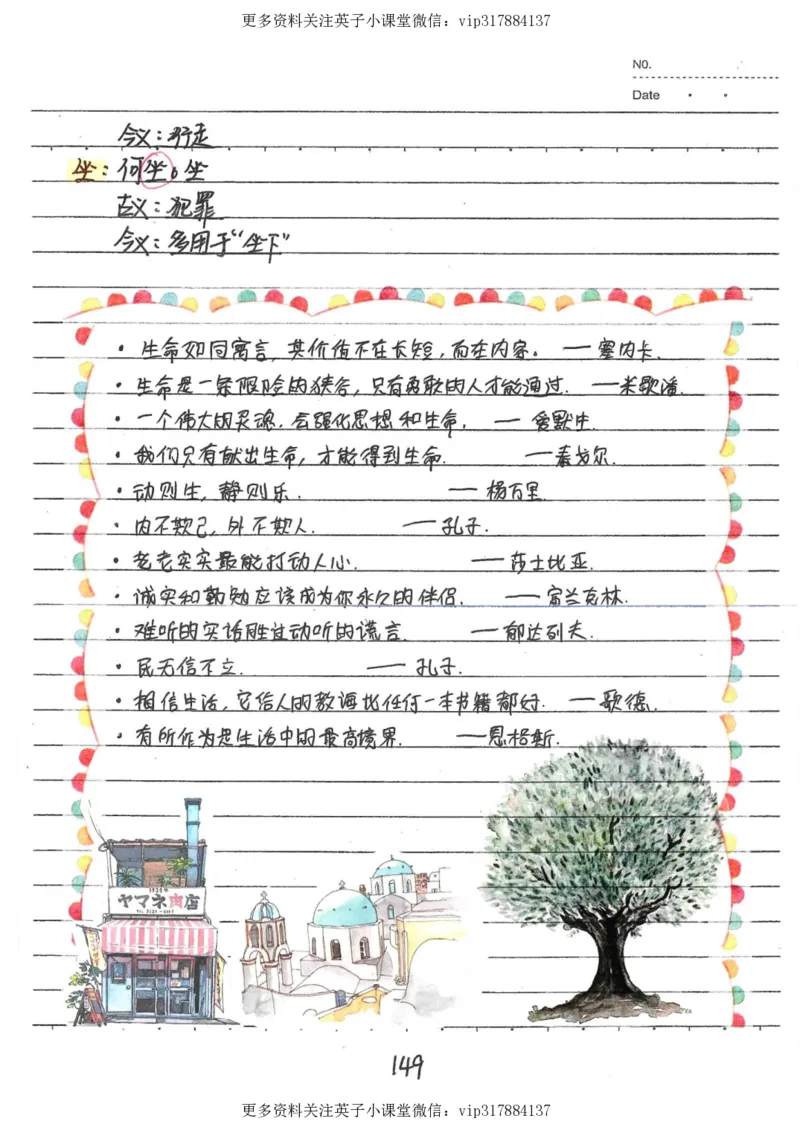 更多资料关注英子小课堂微信：vip317884137
NO.
Date
今义：行走
坐：何坐。坐
古义：犯罪
今义：多用于“坐下”
· 生命如同寓言，其价值不在长短，而在内容。 — 塞内卡.
· 生命是一条艰险的狭谷，只有勇敢的人才能通过. — 米歇潘.
· 一个伟大的灵魂，会强化思想和生命. — 爱默生.
· 我们只有献出生命，才能得到生命. — 泰戈尔.
· 动则生，静则乐. — 杨百里
· 内不欺己，外不欺人. — 孔子.
· 老老实实最能打动人心. — 莎士比亚.
· 诚实和勤勉应该成为你永久的伴侣. — 富兰克林.
· 难听的实话胜过动听的谎言. — 郁达列夫.
· 民无信不立. — 孔子.
· 相信生活，它给人的教诲比任何一本书籍都好. — 歌德.
· 有所作为是生活中的最高境界. — 恩格斯.
ヤマネ肉店
149
更多资料关注英子小课堂微信：vip317884137